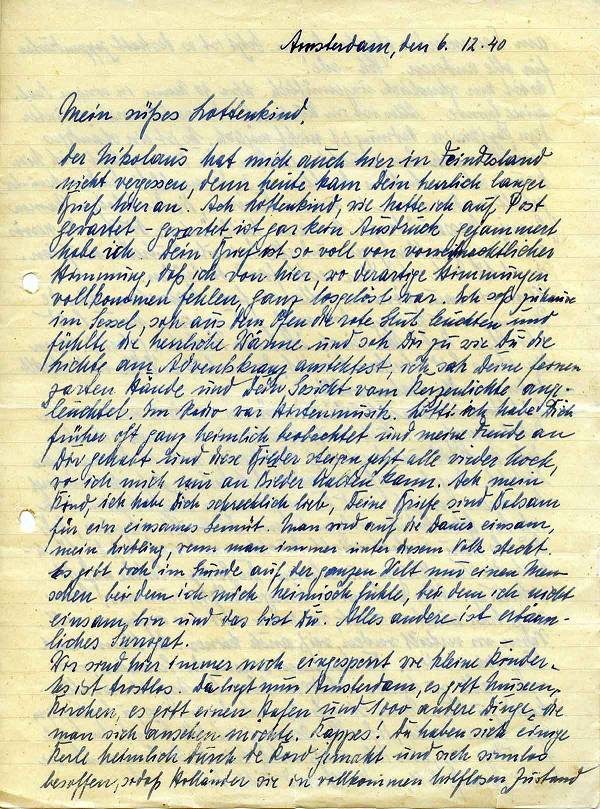 Amsterdam, den 6.12.40
Mein süßes Lottenkind,
der Nikolaus hat mich auch hier in Feindesland
nicht vergessen, denn heute kam Dein herrlich langer
Brief hier an. Ach Lottenkind, wie hatte ich auf Post
gewartet - gewartet ist gar kein Ausdruck, gejammert
habe ich. Dein Brief ist so voll von vorweihnachtlicher
Stimmung, daß ich von hier, wo derartige Stimmungen
vollkommen fehlen, ganz losgelöst war. Ich saß zuhause
im Sessel, sah aus dem Ofen die rote Glut leuchten und
fühlte die herrliche Wärme und sah Dir zu wie Du die
Lichte am Adventskranz anstecktest, ich sah Deine fernen
zarten Hände und Dein Gesicht vom Kerzenlichte ange-
leuchtet. Im Radio war Hirtenmusik. Lotti ich habe Dich
früher oft ganz heimlich beobachtet und meine Freude an
Dir gehabt und diese Bilder steigen jetzt alle wieder hoch,
wo ich mich nur an Bieder halten kann. Ach mein
Kind, ich habe Dich schrecklich lieb, Deine Briefe sind Balsam
für ein einsames Gemüt. Man wird auf die Dauer einsam,
mein Liebling, wenn man immer unter diesem Volk steckt.
Es gibt doch im Grunde auf der ganzen Welt nur einen Men-
schen bei dem ich mich heimisch fühle, bei dem ich nicht
einsam bin und das bist Du. Alles andere ist erbärm-
liches Surrogat.
Wir sind hier immer noch eingesperrt wie kleine Kinder.
Es ist trostlos. Da liegt nun Amsterdam, es gibt Museen,
Kirchen, es gibt einen Hafen und 1000 andere Dinge, die
man sich ansehen möchte. Kappes! Da haben sich einige
Kerle heimlich durch die gemacht und sich sinnlos
besoffen, sodaß Holländer sie in vollkommen hilflosem Zustand